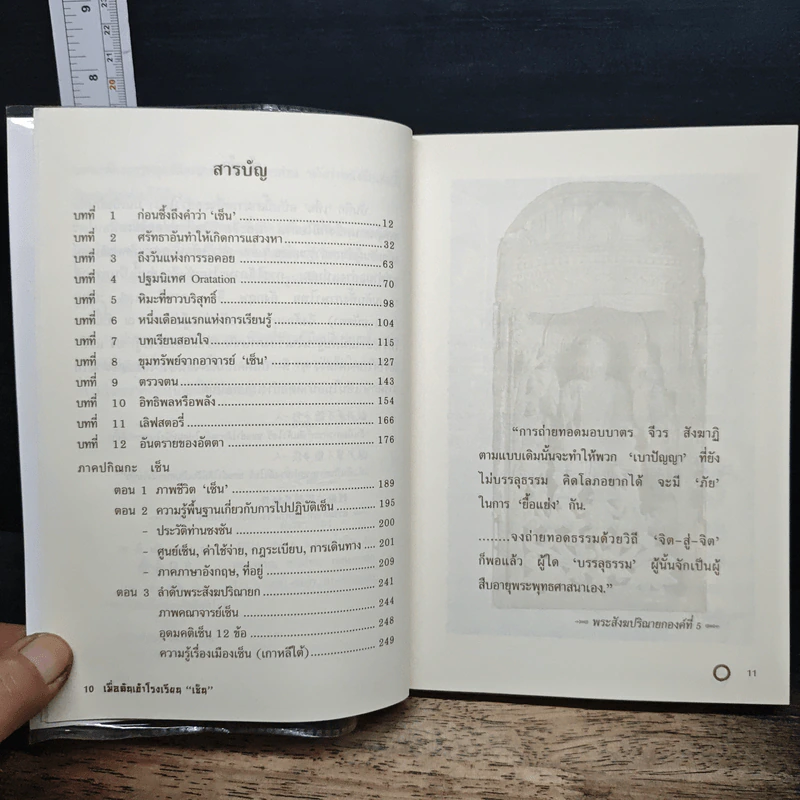 สารบัญ
บทที่ 1 ก่อนซึ้งถึงคำว่า ‘เซ็น’ 12
บทที่ 2 ศรัทธาอันทำให้เกิดการแสวงหา 32
บทที่ 3 ถึงวันแห่งการรอคอย 63
บทที่ 4 ปฐมนิเทศ Oratation 70
บทที่ 5 หิมะที่ขาวบริสุทธิ์ 98
บทที่ 6 หนึ่งเดือนแรกแห่งการเรียนรู้ 104
บทที่ 7 บทเรียนสอนใจ 115
บทที่ 8 ขุมทรัพย์จากอาจารย์ ‘เซ็น’ 127
บทที่ 9 ตรวจตน 143
บทที่ 10 อิทธิพลหรือพลัง 154
บทที่ 11 เลิฟสตอรี่ 166
บทที่ 12 อันตรายของอัตตา 176
ภาคปกิณกะ เซ็น
ตอน 1 ภาพชีวิต ‘เซ็น’ 189
ตอน 2 ความรู้พื้นฐานเกี่ยวกับการไปปฏิบัติเซ็น 195
- ประวัติท่านซงซัน 200
- ศูนย์เซ็น, ค่าใช้จ่าย, กฎระเบียบ, การเดินทาง 201
- ภาคภาษาอังกฤษ, ที่อยู่ 209
ตอน 3 ลำดับพระสังฆปริณายก 241
ภาพคณาจารย์เซ็น 244
อุดมคติเซ็น 12 ข้อ 248
ความรู้เรื่องเมืองเซ็น (เกาหลีใต้) 249
10 เมื่อฉันเข้าโรงเรียน “เซ็น”
“การถ่ายทอดมอบบาตร จีวร สังฆาฏิ
ตามแบบเดิมนั้นจะทำให้พวก ‘เบาปัญญา’ ที่ยัง
ไม่บรรลุธรรม คิดโลภอยากได้ จะมี ‘ภัย’
ในการ ‘ยื้อแย่ง’ กัน.
........จงถ่ายทอดธรรมด้วยวิถี ‘จิต-สู่-จิต’
ก็พอแล้ว ผู้ใด ‘บรรลุธรรม’ ผู้นั้นจักเป็นผู้
สืบอายุพระพุทธศาสนาเอง.”
พระสังฆปริณายกองค์ที่ 5
11
8
9
20
21
22
23